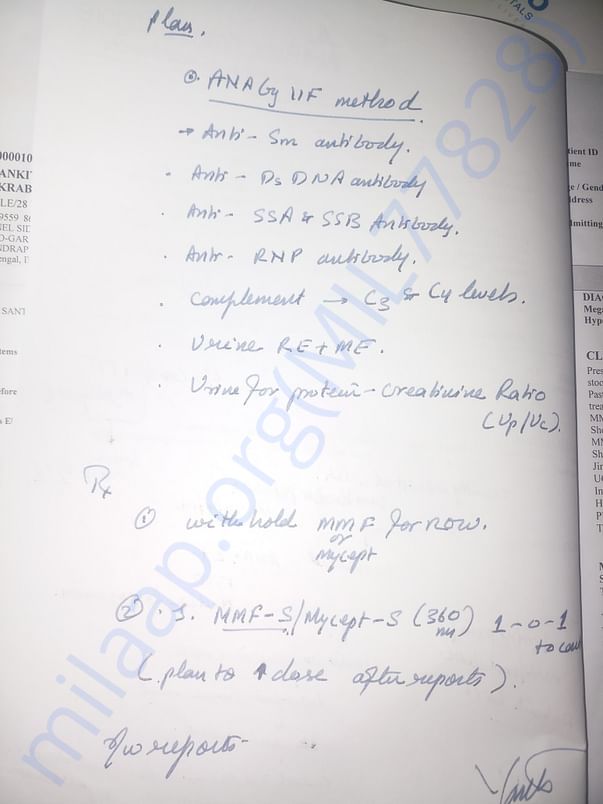 Plan.
ANA by IIF method.
→ Anti - Sm antibody.
· Anti - Ds DNA antibody
· Anti - SSA & SSB Antibody.
· Anti - RNP antibody.
· Complement → C3 & C4 levels.
· Urine RE + ME.
· Urine for protein - creatinine Ratio
(Up/Uc).
Rx
① withhold MMF for now.
or
Mycept
② MMF-S/Mycept-S (360 1-0-1
(plan to ↑ dose after reports).
reports
milaap.org(MIL77828)
TALS
000010
ANKI
KRAB
LE/28
9559
NEL SID
O-GAR
NDRAP
engal, I
SANT
tems
efore
s E/
tient ID
me
e / Gend
ddress
dmitting
DIAG
Mega
Hype
CL
Pres
stoo
Past
trea
MM
Sh
MM
Sh
Jir
U
In
H
P
T